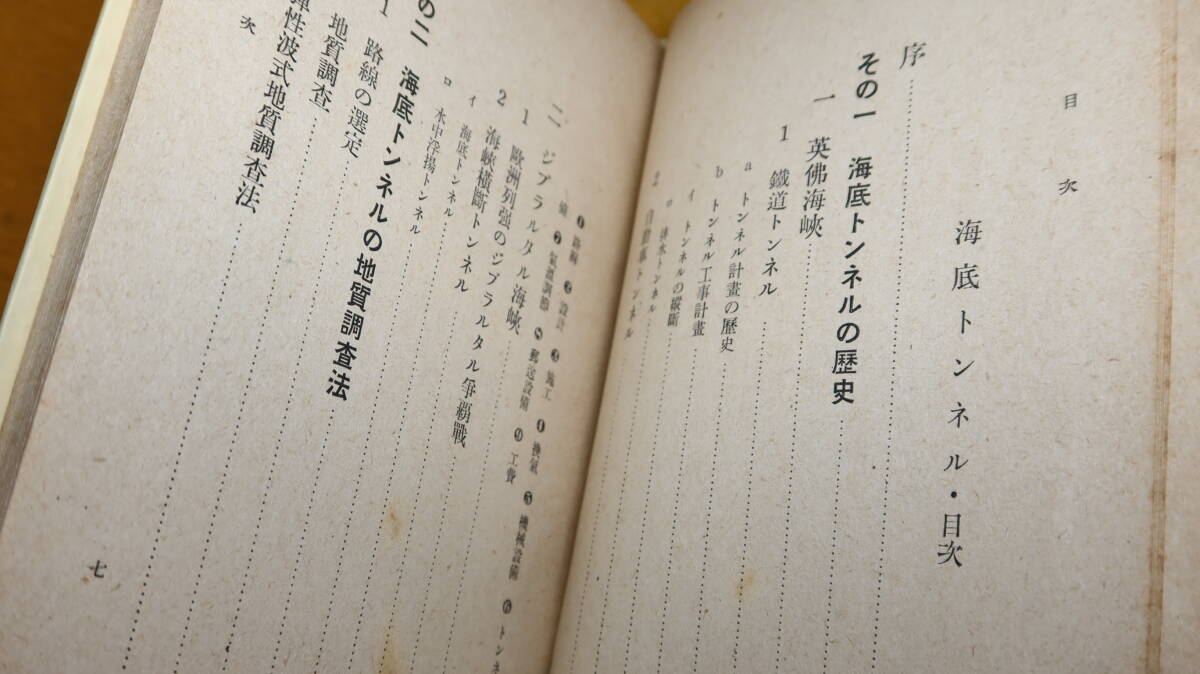 目次
海底トンネル・目次
序
その一 海底トンネルの歴史
一 英佛海峽
1 鐵道トンネル
a トンネル計畫の歷史
b トンネル工事計畫
イ トンネルの縱斷
ロ 排水トンネル
2 自動車トンネル
❶ 路線 ❷ 設計 ❸ 施工 ❹ 換氣 ❺ 機械設備 ❻ トンネ
❼ 氣溫調節 ❽ 郵送設備 ❾ 工費
二 ジブラルタル海峽
1 歐洲列强のジブラルタル爭覇戰
2 海峽橫斷トンネル
イ 海底トンネル
ロ 水中浮揚トンネル
の二 海底トンネルの地質調査法
1 路線の選定
地質調査
彈性波式地質調査法
次
七